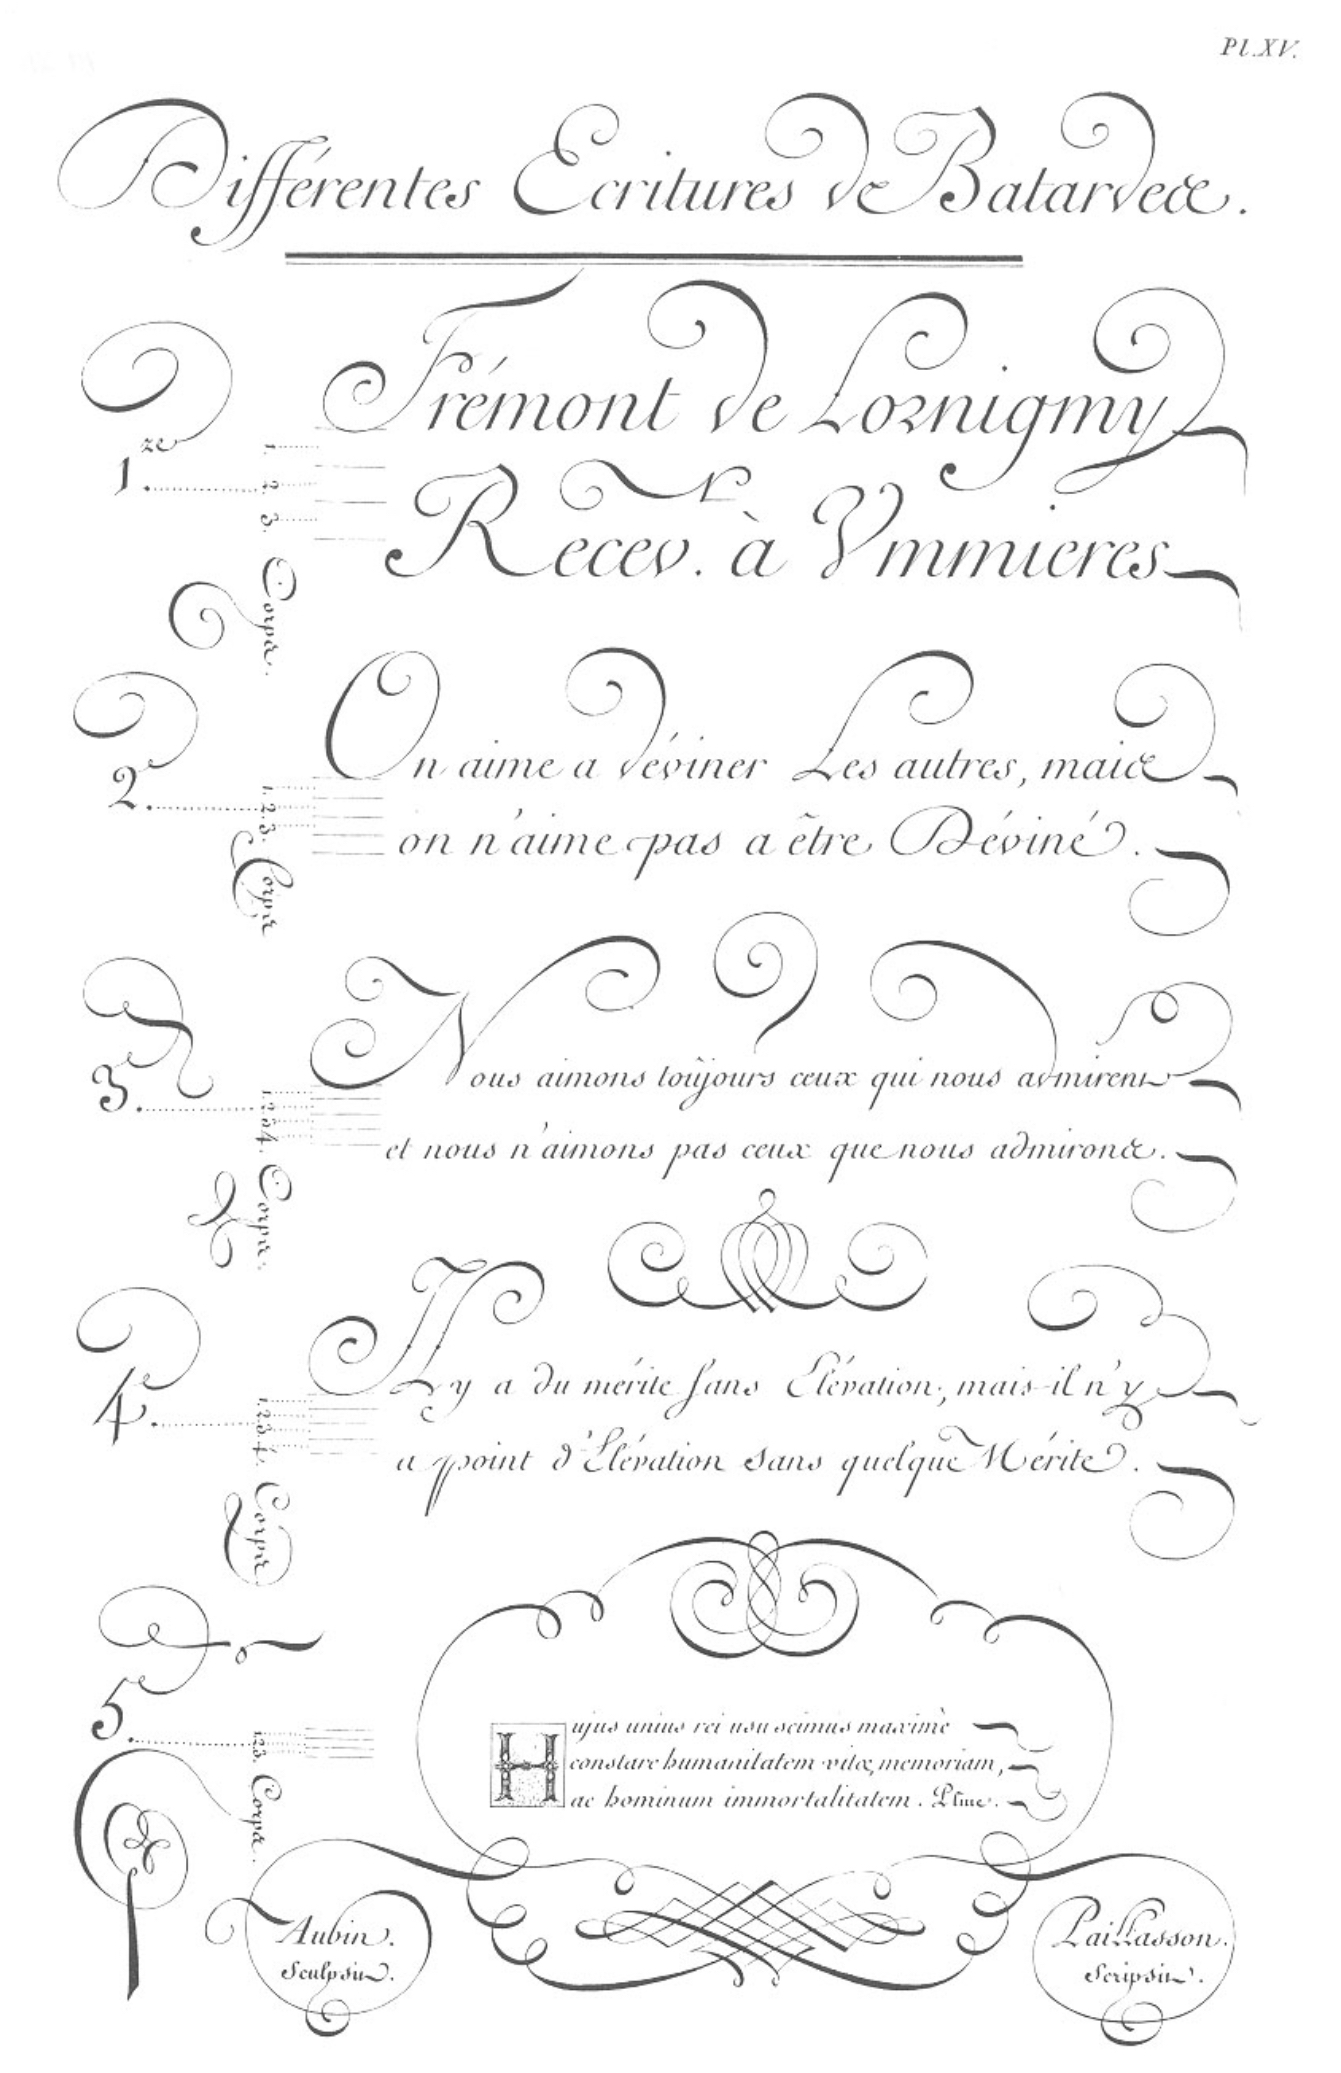 Pl. XV.
Différentes Ecritures de Batardes.
1.re
Frémont de Lornigmy
1.
2.
3.
Recev.r à Vmmieres
Corps.
2.e
On aime a déviner Les autres, mais
1.2.3.
on n'aime pas a être Déviné.
Corps
3.e
Nous aimons toûjours ceux qui nous admirent
1.2.3.4.
et nous n'aimons pas ceux que nous admirons.
Corps.
4.e
Il y a du mérite sans Elévation, mais il n'y
1.2.3.4.
a point d'Elévation sans quelque Mérite.
Corps
5.e
Hujus unius rei usu scimus maximè
1.2.3.
constare humanitatem vitæ, memoriam,
ac hominum immortalitatem. Pline.
Corps.
Aubin.
Sculpsit.
Paillasson.
Scripsit.